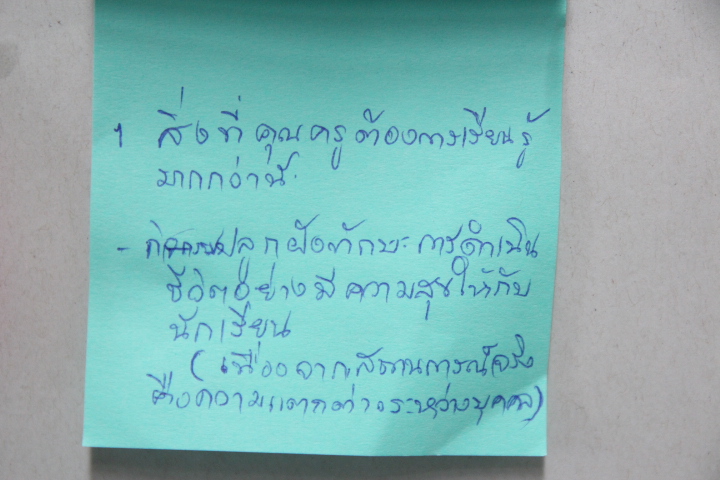 1 สิ่งที่คุณครูต้องการเรียนรู้
มากกว่านี้
- ปลูกฝังทักษะการดำเนิน
ชีวิตอย่างมีความสุขให้กับ
นักเรียน
(เนื่องจากสถานการณ์จริง
คือความแตกต่างระหว่างบุคคล)